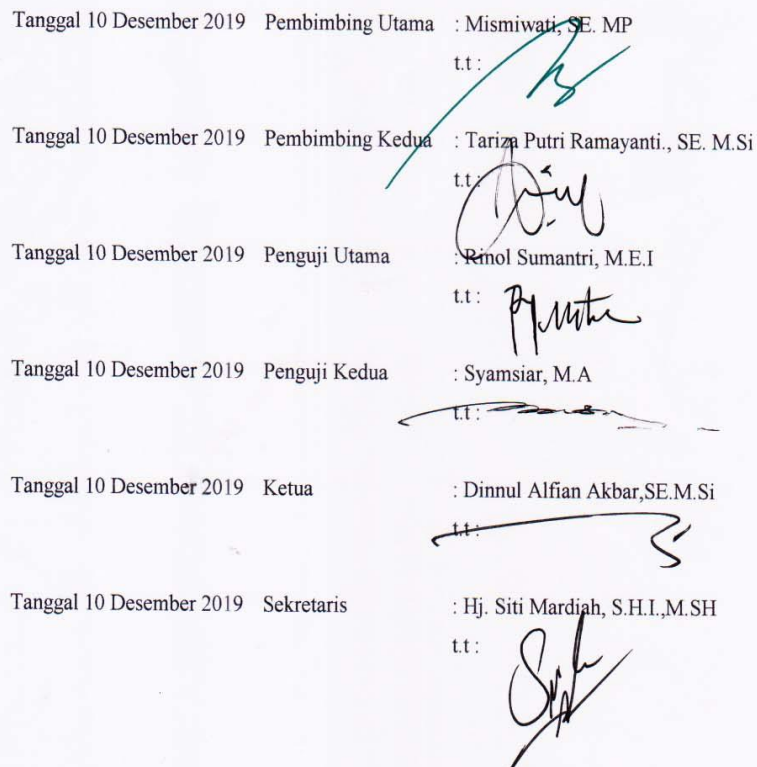 Tanggal 10 Desember 2019 Pembimbing Utama : Mismiwati, SE. MP
t.t :
Tanggal 10 Desember 2019 Pembimbing Kedua : Tariza Putri Ramayanti., SE. M.Si
t.t:
Tanggal 10 Desember 2019 Penguji Utama : Rinol Sumantri, M.E.I
t.t :
Tanggal 10 Desember 2019 Penguji Kedua : Syamsiar, M.A
t.t :
Tanggal 10 Desember 2019 Ketua : Dinnul Alfian Akbar,SE.M.Si
t.t :
Tanggal 10 Desember 2019 Sekretaris : Hj. Siti Mardiah, S.H.I.,M.SH
t.t :